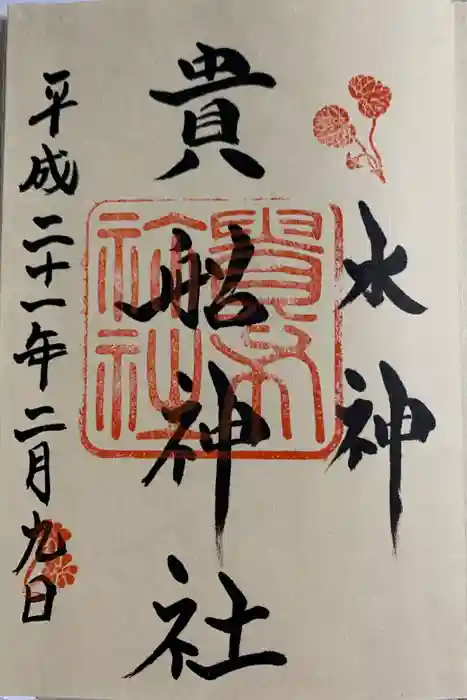 水神
貴船神社
平成二十一年二月九日